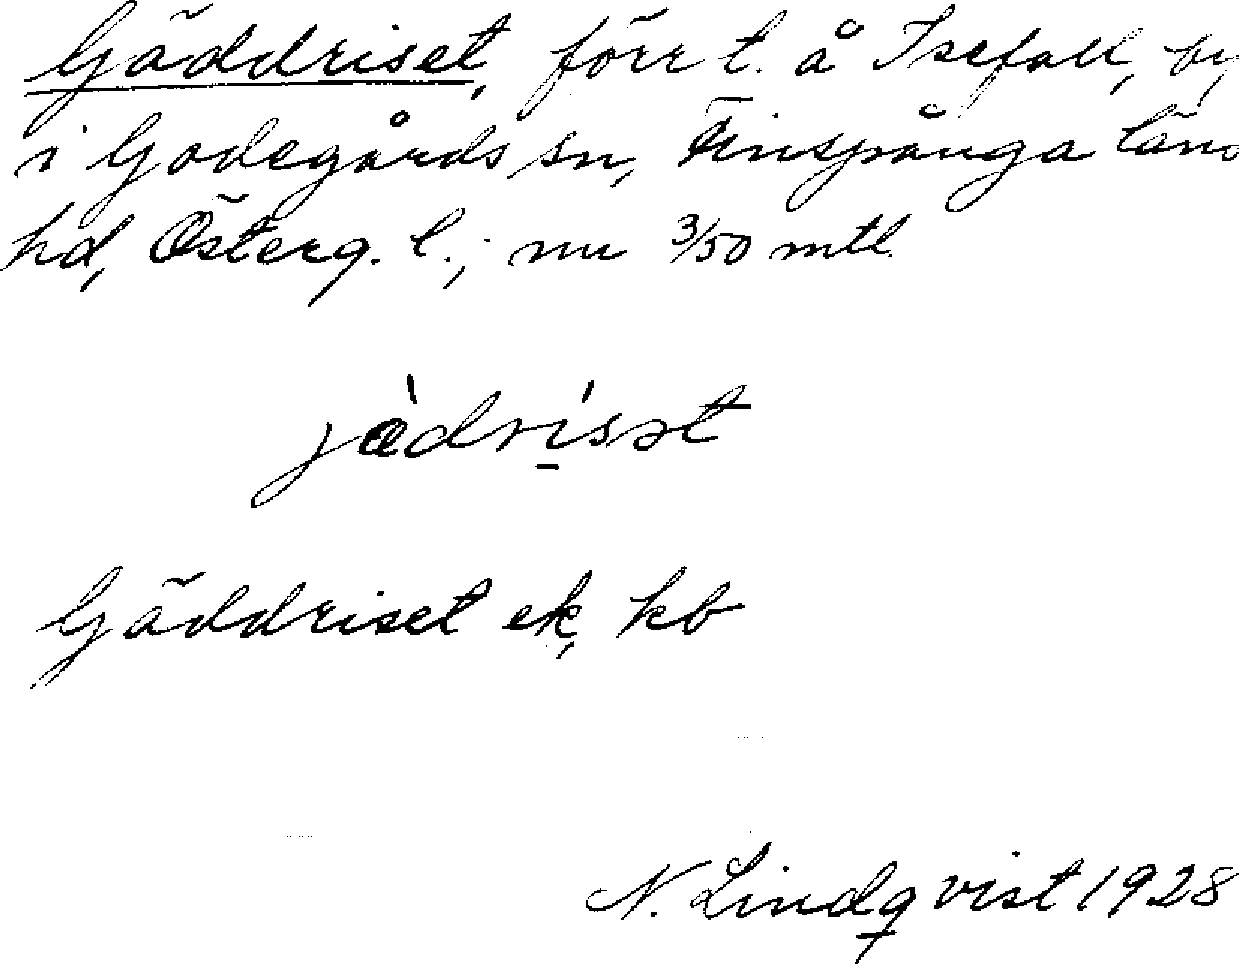 Gäddriset, förr t. å Isefall, by
i Godegårds sn, Finspånga läns
hd, Österg. l.; nu 3/50 mtl
jæ̀drísət
Gäddriset ek, kb
N. Lindqvist 1928